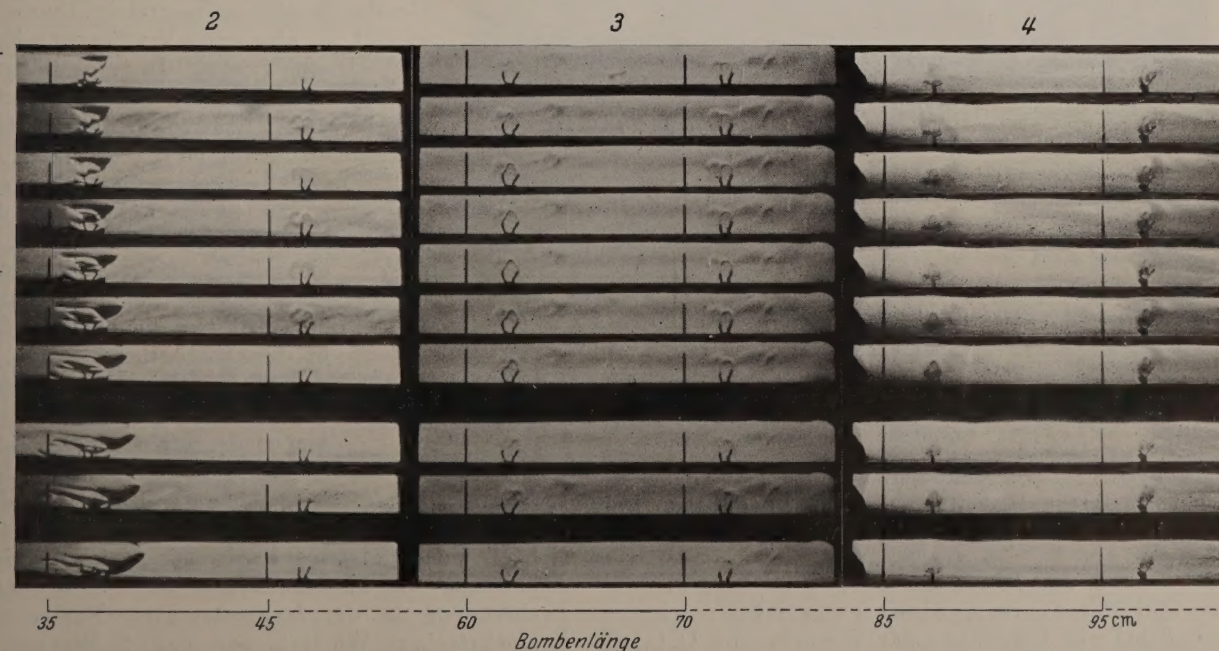 2 3 4
35 45 60 70 85 95 cm
Bombenlänge